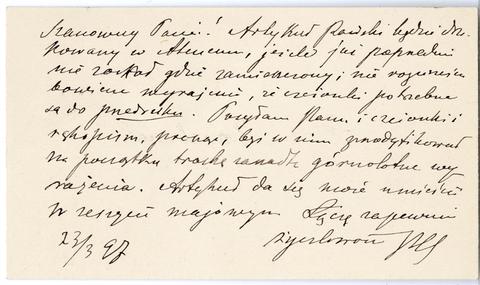 Szanowny Panie! Artykuł Pański będzie dru-
kowany w Ateneum, jeżeli już poprzednio
nie został gdzie zamieszczony; nie rozumiem
bowiem wyrażenia, że czcionki potrzebne
są do przedruku. Posyłam Panu i czcionki i
rękopism, prosząc, byś w nim zmodyfikował
na początku trochę zanadto górnolotne wy-
rażenia. Artykuł da się może umieścić
w zeszycie majowym Łączę zapewnienia
23/3 97